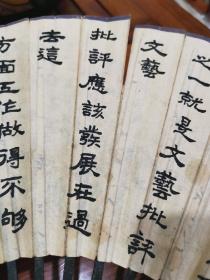 之一就是文藝批評
文藝
批評應該發展在過
去這
方面工作做得不够